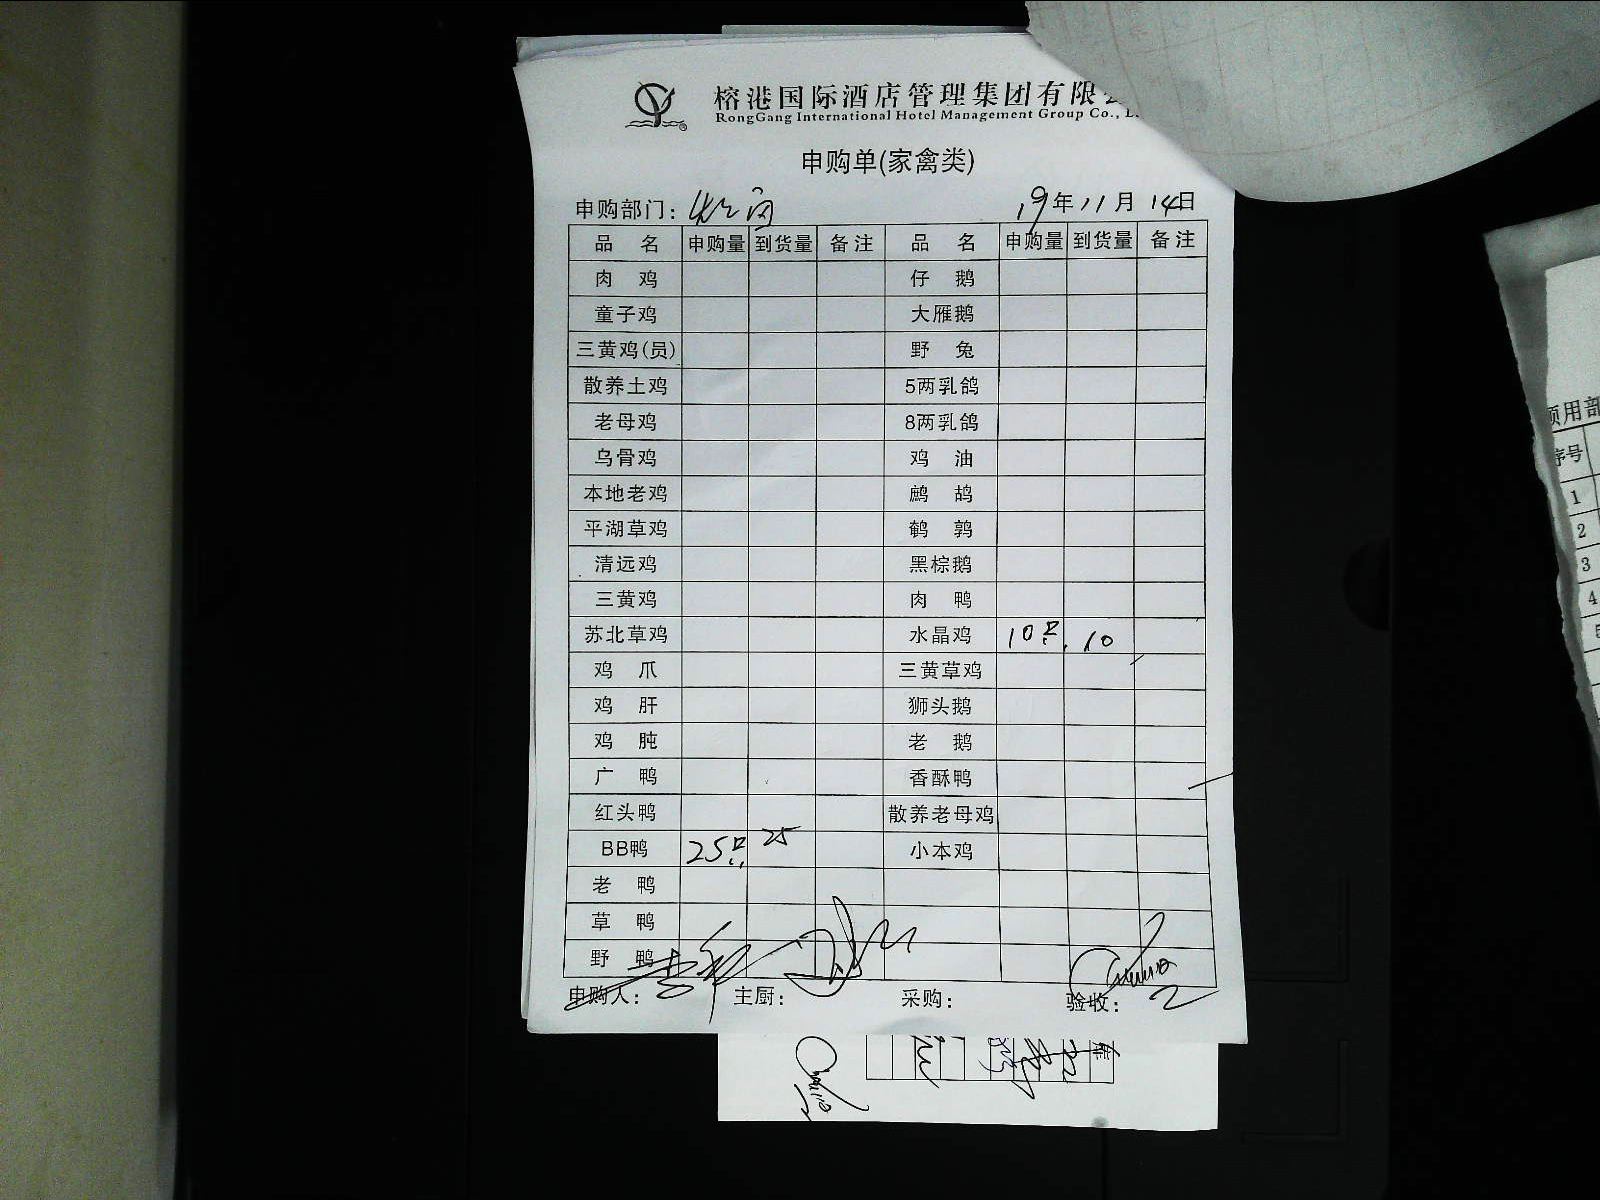 榕港国际酒店管理集团有限
RongGang International Hotel Management Group Co., L
申购单(家禽类)
申购部门: 19年11月14日
品名 申购量 到货量 备注 品名 申购量 到货量 备注
肉鸡 仔鹅
童子鸡 大雁鹅
三黄鸡(员) 野兔
散养土鸡 5两乳鸽
老母鸡 8两乳鸽
乌骨鸡 鸡油
本地老鸡 鹧鸪
平湖草鸡 鹌鹑
清远鸡 黑棕鹅
三黄鸡 肉鸭
苏北草鸡 水晶鸡 10只. 10
鸡爪 三黄草鸡
鸡肝 狮头鹅
鸡肫 老鹅
广鸭 香酥鸭
红头鸭 散养老母鸡
BB鸭 25只 25 小本鸡
老鸭
草鸭
野鸭
申购人: 主厨: 采购: 验收:
领用部
序号
1
2
3
4